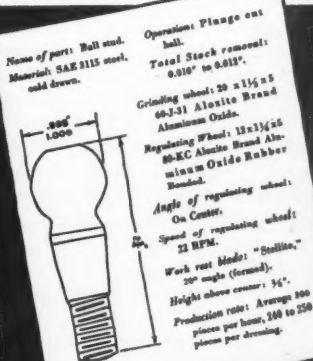 Name of part: Ball stud.
Material: SAE 3115 steel,
cold drawn.
1.000
Operation: Plunge cut
ball.
Total Stock removal:
0.010" to 0.012".
Grinding wheel: 20 x 1½ x 5
60-J-31 Aloxite Brand
Aluminum Oxide.
Regulating Wheel: 12x1½x5
80-KC Aloxite Brand Alu-
minum Oxide Rubber
Bonded.
Angle of regulating wheel:
On Center.
Speed of regulating wheel:
22 RPM.
Work rest blade: "Stellite,"
20° angle (formed).
Height above center:
Production rate: Average 300
pieces per hour, 240 to 250
pieces per dressing.